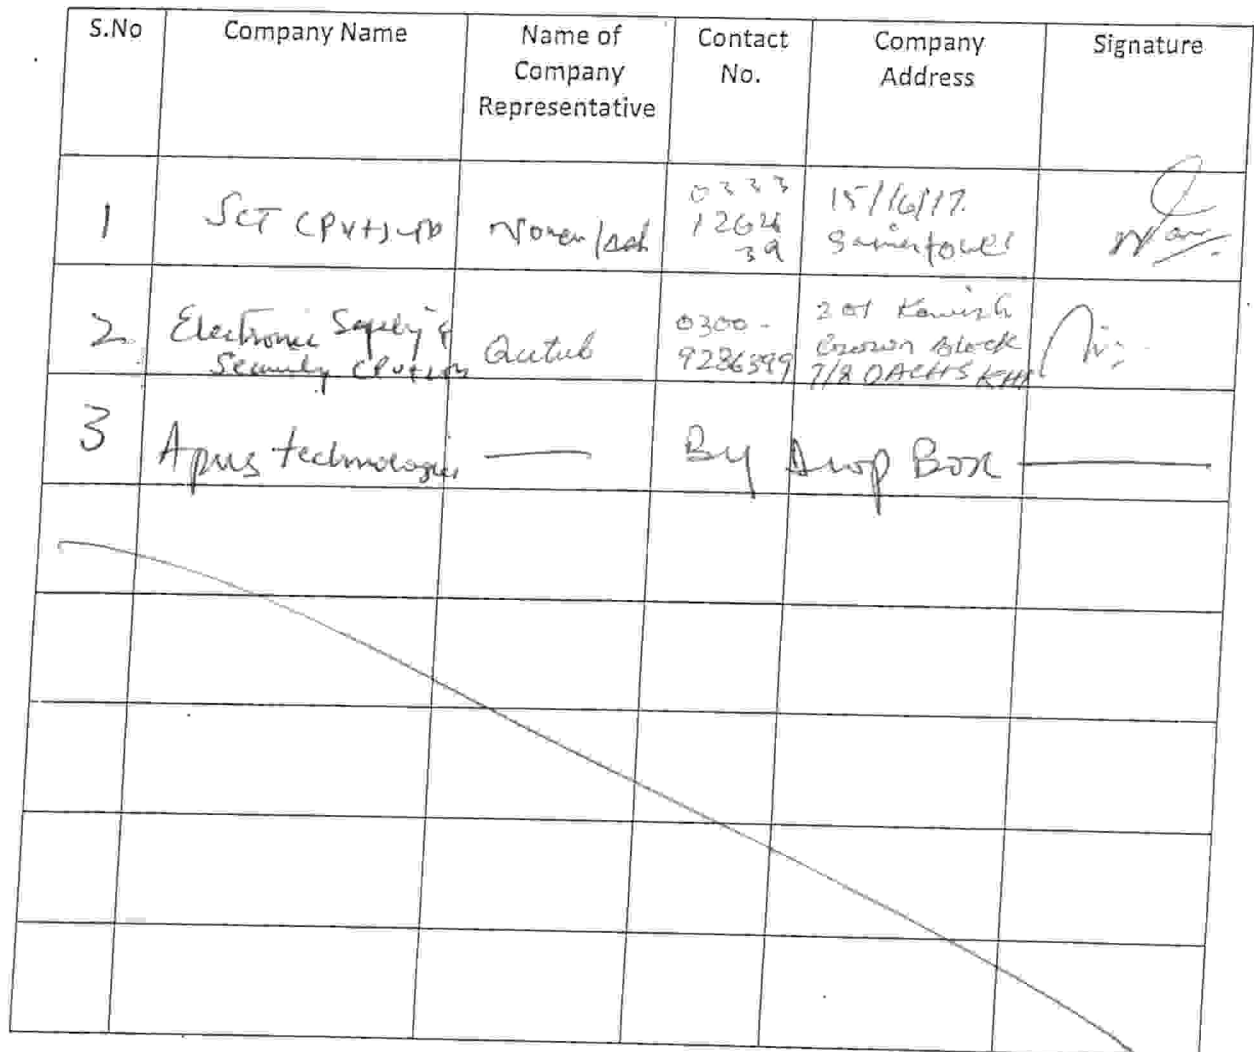 S.No Company Name Name of Company Representative Contact No. Company Address Signature
1 SCT (Pvt) Ltd 0333 126439 15/16/17.
2 Electronic Safety & Security (Pvt) Ltd Qutub 0300-9286399 201 Kawish Crown Block 7/8 DACHS KHI
3 Apus technologies — By Drop Box —